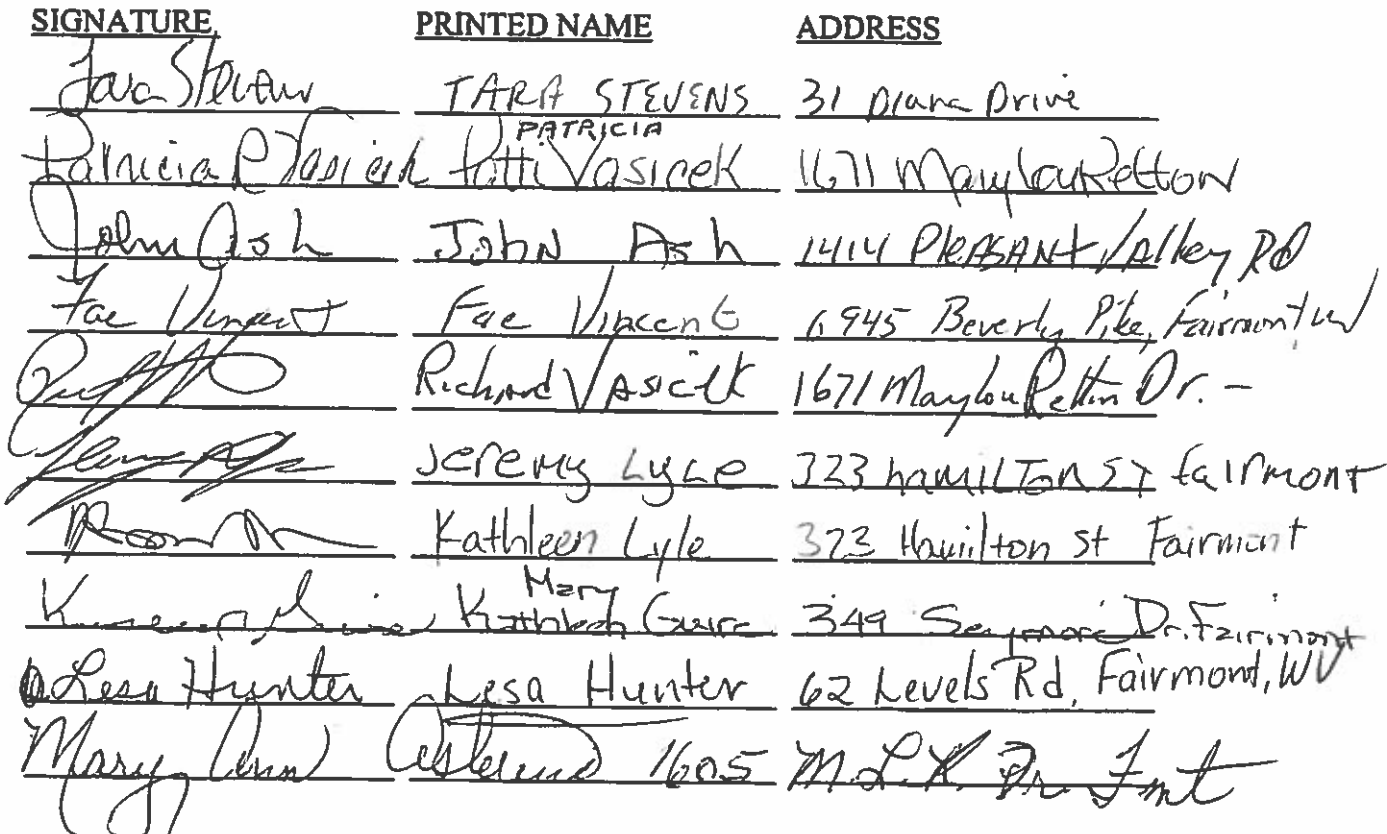 SIGNATURE PRINTED NAME ADDRESS
Tara Stevens TARA STEVENS 31 Diana Drive
PATRICIA
Patricia R Vasicek Patti Vasicek 1671 MaryLouRetton
John Ash John Ash 1414 PleASANt VAlley RD
Fae Vincent Fae Vincent 1945 Beverly Pike, Fairmont WV
Richard VAsicek 1671 Marylou Retton Dr. -
Jeremy Lyle 323 hamiLTon ST faIrmonT
Kathleen Lyle 323 Hamilton st Fairmont
Mary
Kathleen Guire 349 Seymore Dr. Fairmont
Lesa Hunter Lesa Hunter 62 Levels Rd, Fairmont, WV
Mary Ann 1605 M.L.K. Dr. Fmt